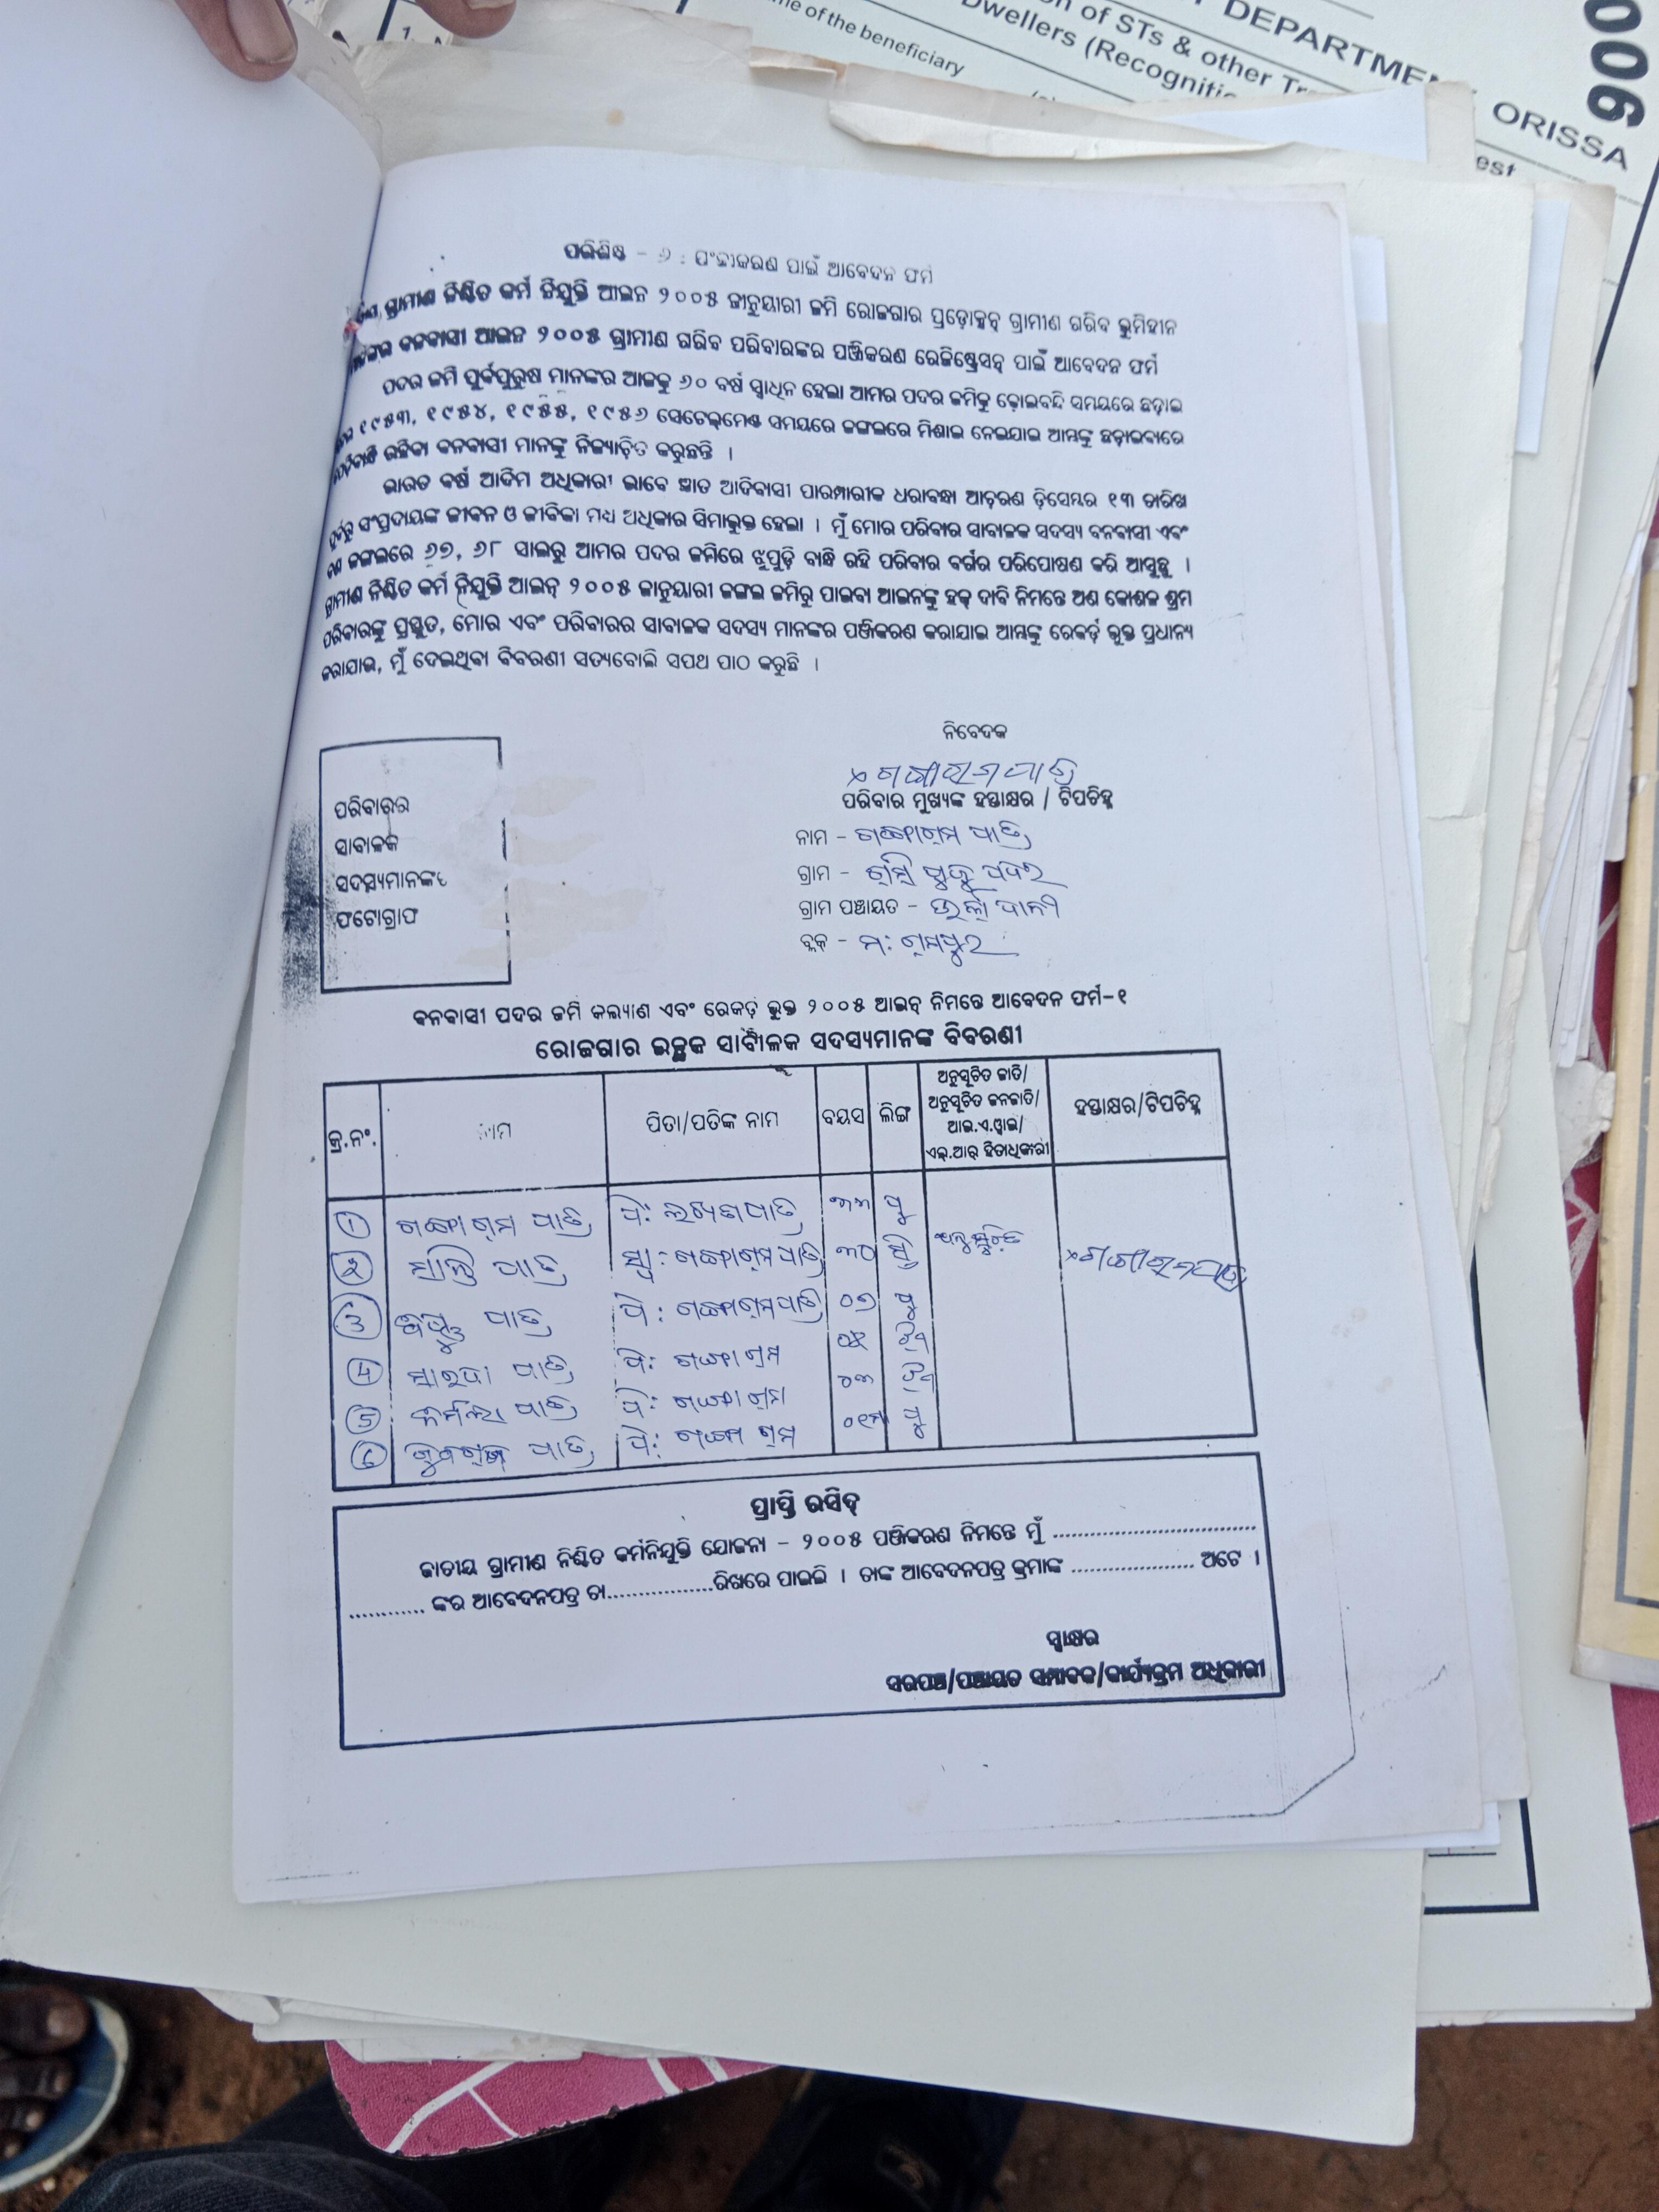 DEPARTMENT, ORISSA
of STs & other
Dwellers
of the beneficiary
ପରିଶିଷ୍ଟ - ୬ : ପଂଜୀକରଣ ପାଇଁ ଆବେଦନ ଫର୍ମ
ଗ୍ରାମୀଣ ନିଶ୍ଚିତ କର୍ମ ନିଯୁକ୍ତି ଆଇନ ୨୦୦୫ ଜାନୁୟାରୀ ଜମି ରୋଜଗାର ପ୍ରଡ଼ୋକ୍ତନ୍ ଗ୍ରାମୀଣ ଗରିବ ଭୂମିହୀନ
ବନବାସୀ ଆଇନ ୨୦୦୫ ଗ୍ରାମୀଣ ଗରିବ ପରିବାରଙ୍କର ପଞ୍ଜିକରଣ ରେଜିଷ୍ଟ୍ରେସନ୍ ପାଇଁ ଆବେଦନ ଫର୍ମ
ପଦର ଜମି ପୂର୍ବପୁରୁଷ ମାନଙ୍କର ଆଜକୁ ୬୦ ବର୍ଷ ସ୍ଵାଧିନ ହେଲା ଆମର ପଦର ଜମିକୁ ଢ଼ୋଇବନ୍ଦି ସମୟରେ ଛଡ଼ାଇ
୧୯୫୩, ୧୯୫୪, ୧୯୫୫, ୧୯୫୬ ସେଟେଲ୍‌ମେଣ୍ଟ ସମୟରେ ଜଙ୍ଗଲରେ ମିଶାଇ ନେଇଯାଇ ଆମ୍ଭଙ୍କୁ ଛଡ଼ାଇବାରେ
ରହିବା ବନବାସୀ ମାନଙ୍କୁ ନିର୍ଜ୍ୟାଚ଼ିତ କରୁଛନ୍ତି ।
ଭାରତ ବର୍ଷ ଆଦିମ ଅଧିକାରୀ ଭାବେ ଜ୍ଞାତ ଆଦିବାସୀ ପାରମ୍ପାରୀକ ଧରାବନ୍ଧା ଆଚରଣ ଡ଼ିସେମ୍ବର ୧୩ ତାରିଖ
ପୂର୍ବରୁ ସଂପ୍ରଦାୟଙ୍କ ଜୀବନ ଓ ଜୀବିକା ମଧ୍ୟ ଅଧିକାର ସିମାଭୁକ୍ତ ହେଲା । ମୁଁ ମୋର ପରିବାର ସାବାଳକ ସଦସ୍ୟ ବନବାସୀ ଏବଂ
ଜଙ୍ଗଲରେ ୬୭, ୬୮ ସାଲରୁ ଆମର ପଦର ଜମିରେ ଝୁପୁଡ଼ି ବାନ୍ଧି ରହି ପରିବାର ବର୍ଗର ପରିପୋଷଣ କରି ଆସୁଛୁ ।
ଗ୍ରାମୀଣ ନିଶ୍ଚିତ କର୍ମ ନିଯୁକ୍ତି ଆଇନ୍ ୨୦୦୫ ଜାନୁୟାରୀ ଜଙ୍ଗଲ ଜମିରୁ ପାଇବା ଆଇନଙ୍କୁ ହକ୍ ଦାବି ନିମନ୍ତେ ଅଣ କୋଶଳ ଶ୍ରମ
ପରିବାରଙ୍କୁ ପ୍ରସ୍ତୁତ, ମୋର ଏବଂ ପରିବାରର ସାବାଳକ ସଦସ୍ୟ ମାନଙ୍କର ପଞ୍ଜିକରଣ କରାଯାଇ ଆମ୍ଭଙ୍କୁ ରେକର୍ଡ଼ ଭୁକ୍ତ ପ୍ରଧାନ୍ୟ
କରାଯାଉ, ମୁଁ ଦେଇଥିବା ବିବରଣୀ ସତ୍ୟବୋଲି ସପଥ ପାଠ କରୁଛି ।
ପରିବାରର
ସାବାଳକ
ସଦସ୍ୟମାନଙ୍କର
ଫଟୋଗ୍ରାଫ
ନିବେଦକ
ପରିବାର ମୁଖ୍ୟଙ୍କ ହସ୍ତାକ୍ଷର / ଟିପଚିହ୍ନ
ନାମ - ଗଙ୍ଗାରାମ ପାତ୍ର
ଗ୍ରାମ -
ଗ୍ରାମ ପଞ୍ଚାୟତ -
ବ୍ଲକ୍ - ମ: ରାମପୁର
ବନବାସୀ ପଦର ଜମି କଲ୍ୟାଣ ଏବଂ ରେକର୍ଡ଼ ଭୁକ୍ତ ୨୦୦୫ ଆଇନ୍ ନିମନ୍ତେ ଆବେଦନ ଫର୍ମ-୧
ରୋଜଗାର ଇଚ୍ଛୁକ ସାବାଳକ ସଦସ୍ୟମାନଙ୍କ ବିବରଣୀ
କ୍ର.ନଂ. ନାମ ପିତା/ପତିଙ୍କ ନାମ ବୟସ ଲିଙ୍ଗ ଅନୁସୂଚିତ ଜାତି/ ଅନୁସୂଚିତ ଜନଜାତି/ ଆଇ.ଏ.ୱାଇ/ ଏଲ୍.ଆର୍ ହିତାଧିକାରୀ ହସ୍ତାକ୍ଷର/ଟିପଚିହ୍ନ
1 ଗଙ୍ଗାରାମ ପାତ୍ର ପି: ଲଖନ ପାତ୍ର ୩୩ ପୁ
2 ପାତ୍ର ସ୍ୱା: ଗଙ୍ଗାରାମ ପାତ୍ର ୩୦ ସ୍ତ୍ରୀ ଅନୁସୂଚିତ
3 ବିଷ୍ଣୁ ପାତ୍ର ପି: ଗଙ୍ଗାରାମ ପାତ୍ର ୦୭ ପୁ
4 ପାତ୍ର ପି: ଗଙ୍ଗାରାମ ୦୫
5 ପାତ୍ର ପି: ଗଙ୍ଗାରାମ ୦୩
6 ଯୁବରାଜ ପାତ୍ର ପି: ଗଙ୍ଗାରାମ ପୁ
ପ୍ରାପ୍ତି ରସିଦ୍
ଜାତୀୟ ଗ୍ରାମୀଣ ନିଶ୍ଚିତ କର୍ମନିଯୁକ୍ତି ଯୋଜନା - ୨୦୦୫ ପଞ୍ଜିକରଣ ନିମନ୍ତେ ମୁଁ ..................................
............ ଙ୍କର ଆବେଦନପତ୍ର ତା.................ରିଖରେ ପାଇଲି । ତାଙ୍କ ଆବେଦନପତ୍ର କ୍ରମାଙ୍କ .................... ଅଟେ ।
ସ୍ୱାକ୍ଷର
ସରପଞ୍ଚ/ପଞ୍ଚାୟତ ସମ୍ପାଦକ/କାର୍ଯ୍ୟକ୍ରମ ଅଧିକାରୀ